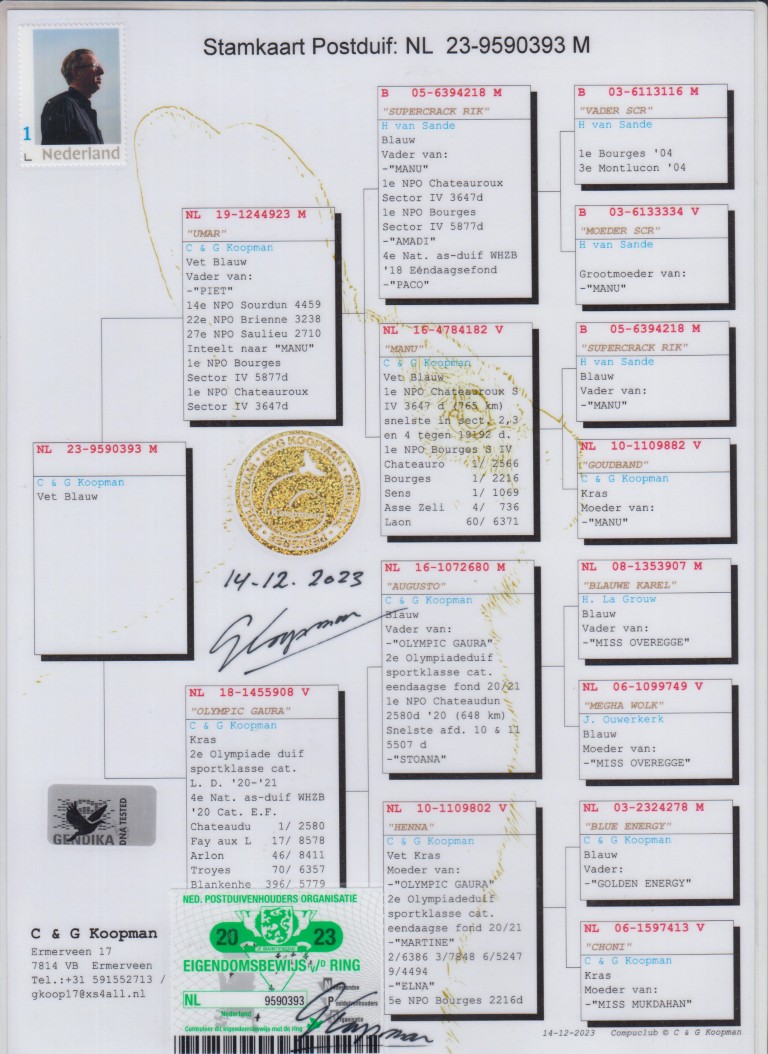 Stamkaart Postduif: NL 23-9590393 M
1
Nederland
NL 23-9590393 M
C & G Koopman
Vet Blauw
NL 19-1244923 M
"UMAR"
C & G Koopman
Vet Blauw
Vader van:
-"PIET"
14e NPO Sourdun 4459
22e NPO Brienne 3238
27e NPO Saulieu 2710
Inteelt naar "MANU"
1e NPO Bourges
Sector IV 5877d
1e NPO Chateauroux
Sector IV 3647d
NL 18-1455908 V
"OLYMPIC GAURA"
C & G Koopman
Kras
2e Olympiade duif
sportklasse cat.
L. D. '20-'21
4e Nat. as-duif WHZB
'20 Cat. E.F.
Chateaudu 1/ 2580
Fay aux L 17/ 8578
Arlon 46/ 8411
Troyes 70/ 6357
Blankenhe 396/ 5779
B 05-6394218 M
"SUPERCRACK RIK"
H van Sande
Blauw
Vader van:
-"MANU"
1e NPO Chateauroux
Sector IV 3647d
1e NPO Bourges
Sector IV 5877d
-"AMADI"
4e Nat. as-duif WHZB
'18 Eéndaagsefond
-"PACO"
NL 16-4784182 V
"MANU"
C & G Koopman
Vet Blauw
1e NPO Chateauroux S
IV 3647 d (765 km)
snelste in sect. 2,3
en 4 tegen 19192 d.
1e NPO Bourges S IV
Chateauro 1/ 2566
Bourges 1/ 2216
Sens 1/ 1069
Asse Zeli 4/ 736
Laon 60/ 6371
NL 16-1072680 M
"AUGUSTO"
C & G Koopman
Blauw
Vader van:
-"OLYMPIC GAURA"
2e Olympiadeduif
sportklasse cat.
eendaagse fond 20/21
1e NPO Chateaudun
2580d '20 (648 km)
Snelste afd. 10 & 11
5507 d
-"STOANA"
NL 10-1109802 V
"HENNA"
C & G Koopman
Vet Kras
Moeder van:
-"OLYMPIC GAURA"
2e Olympiadeduif
sportklasse cat.
eendaagse fond 20/21
-"MARTINE"
2/6386 3/7848 6/5247
9/4494
-"ELNA"
5e NPO Bourges 2216d
B 03-6113116 M
"VADER SCR"
H van Sande
1e Bourges '04
3e Montlucon '04
B 03-6133334 V
"MOEDER SCR"
H van Sande
Grootmoeder van:
-"MANU"
B 05-6394218 M
"SUPERCRACK RIK"
H van Sande
Blauw
Vader van:
-"MANU"
NL 10-1109882 V
"GOUDBAND"
C & G Koopman
Kras
Moeder van:
-"MANU"
NL 08-1353907 M
"BLAUWE KAREL"
H. La Grouw
Blauw
Vader van:
-"MISS OVEREGGE"
NL 06-1099749 V
"MEGHA WOLK"
J. Ouwerkerk
Blauw
Moeder van:
-"MISS OVEREGGE"
NL 03-2324278 M
"BLUE ENERGY"
C & G Koopman
Blauw
Vader:
-"GOLDEN ENERGY"
NL 06-1597413 V
"CHONI"
C & G Koopman
Kras
Moeder van:
-"MISS MUKDAHAN"
C&G KOOPMAN
14-12. 2023
GKoopman
GENDIKA
DNA TESTED
C & G Koopman
Ermerveen 17
7814 VB Ermerveen
Tel.:+31 591552713 /
gkoop17@xs4all.nl
NED. POSTDUIVENHOUDERS ORGANISATIE
20 23
EIGENDOMSBEWIJS v/d RING
NL 9590393
Nederland
Nederlandse
Postduivenhouders
Organisatie
Controleer dit eigendomsbewijs met dit ring
GKoopman
14-12-2023 Compuclub © C & G Koopman